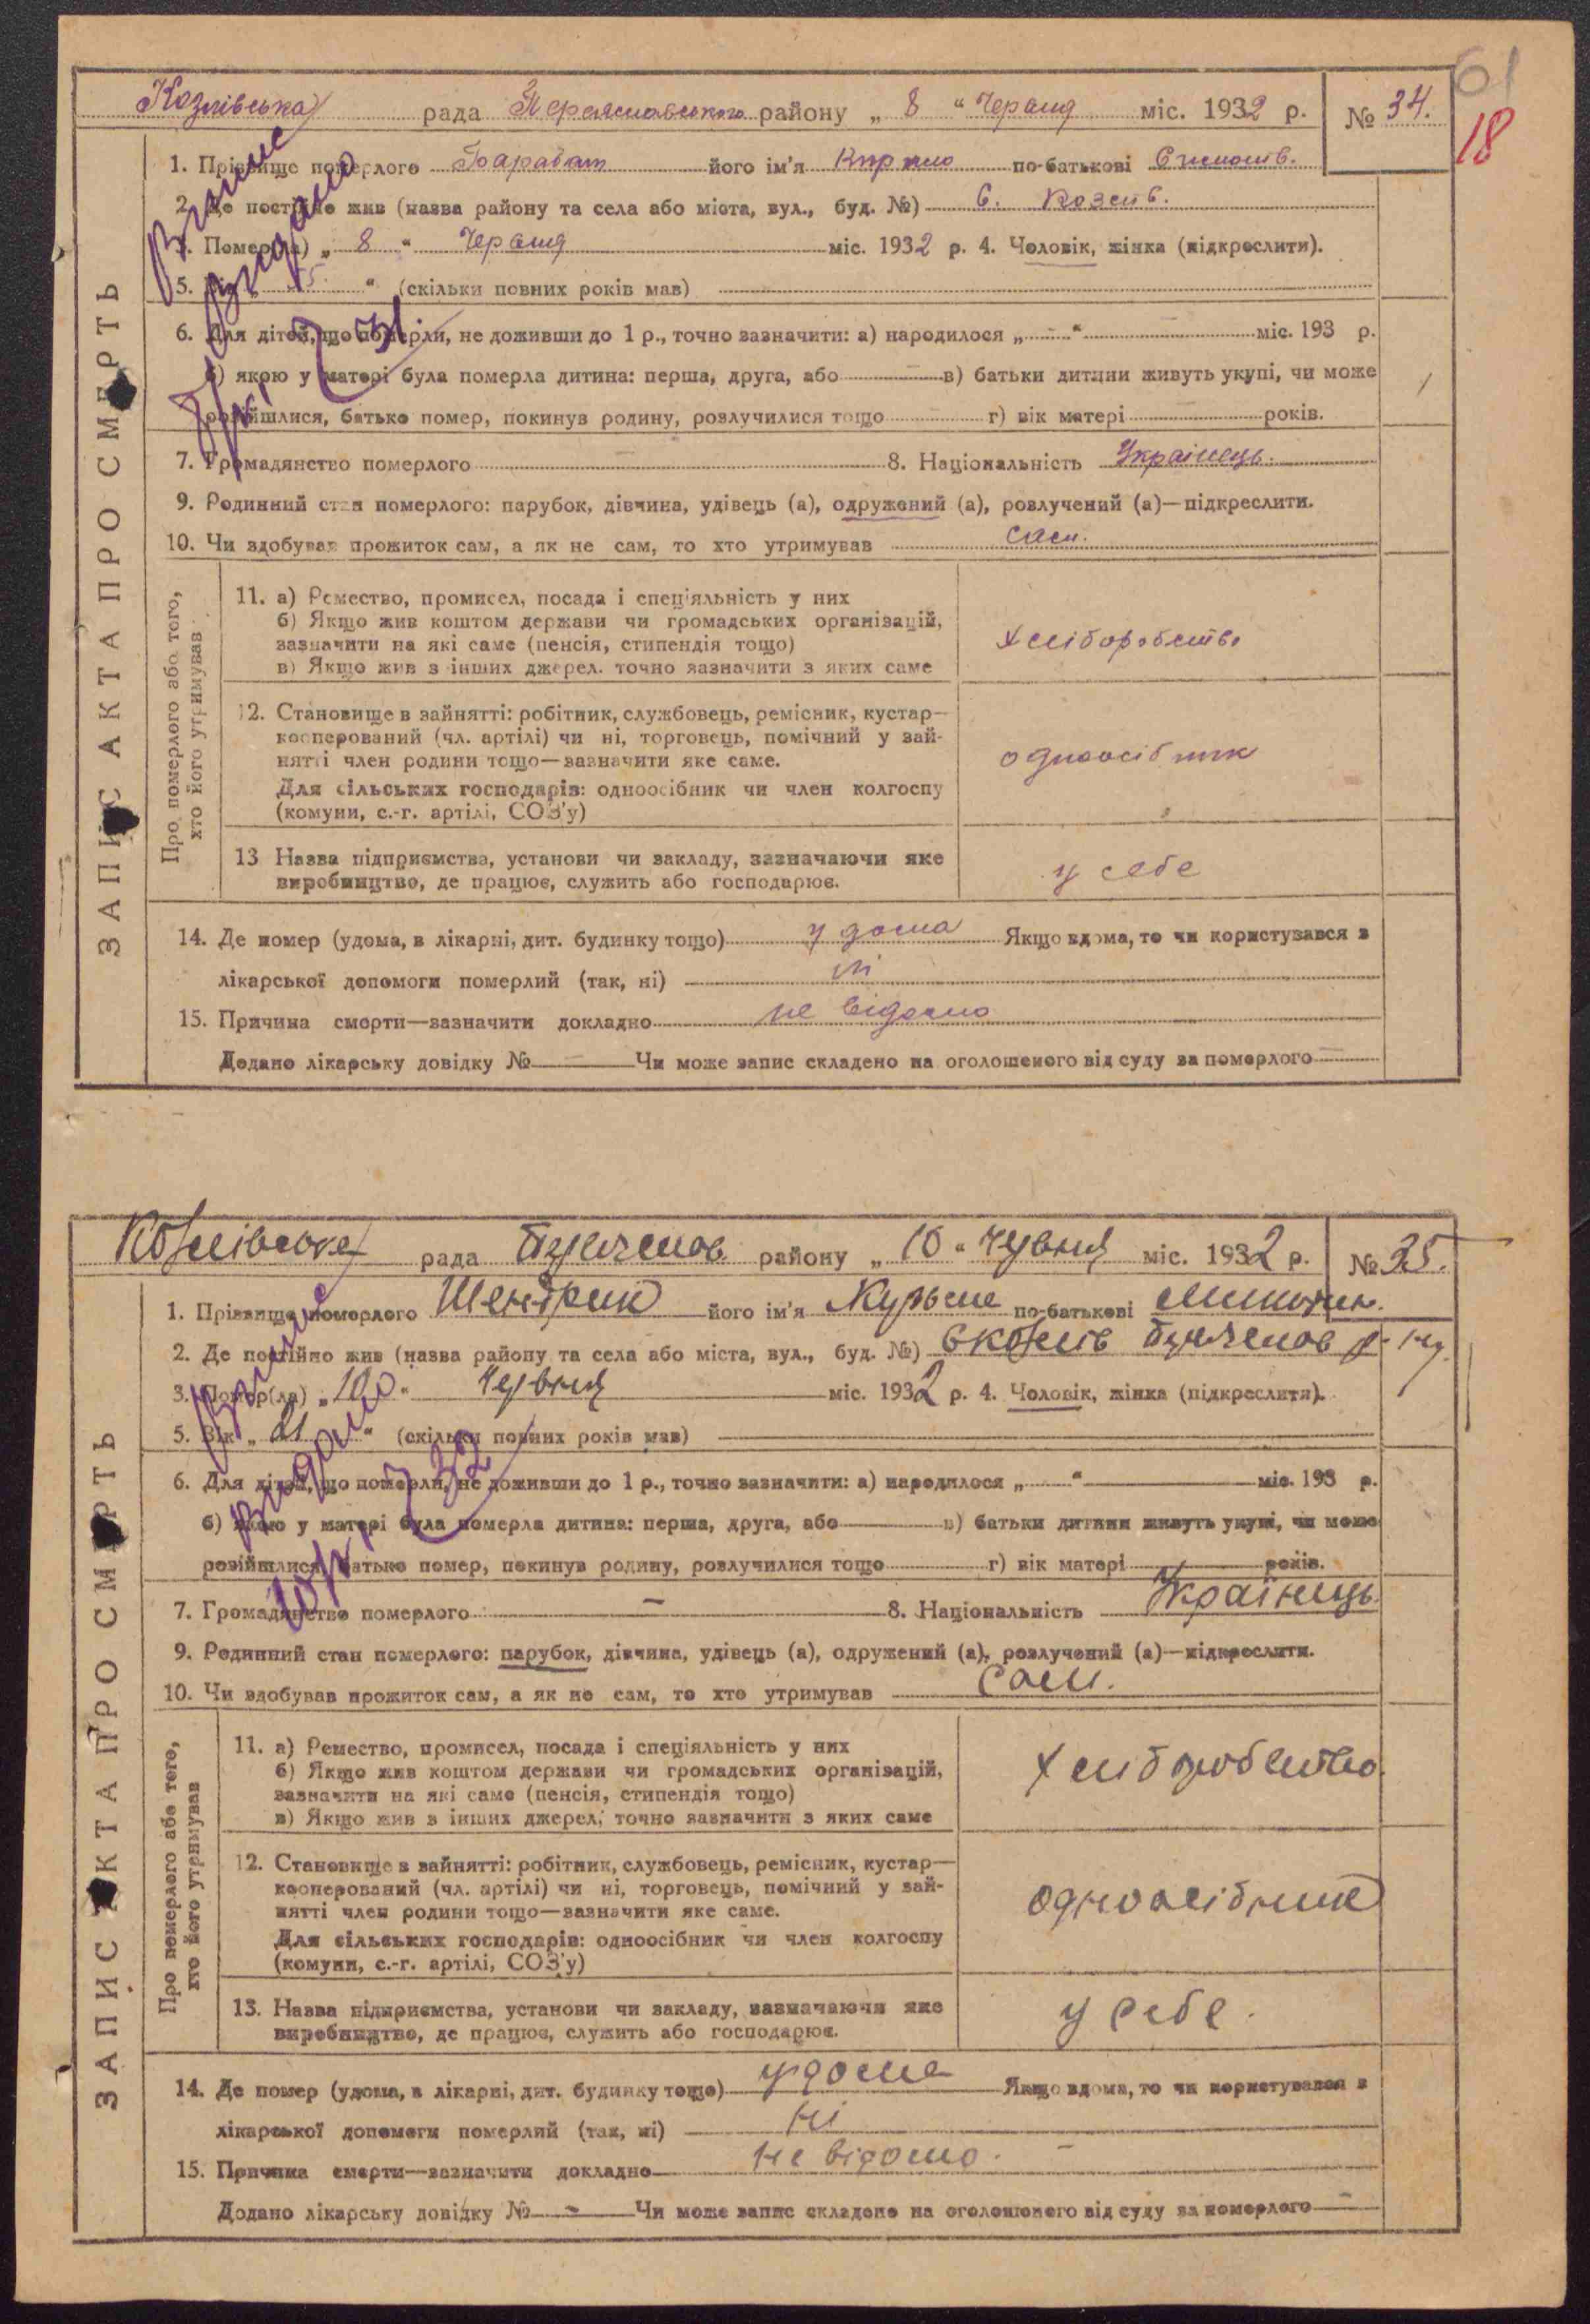 61
18
Козлівська рада Переяславського району „ 8 “ Червня міс. 1932 р. № 34.
1. Прізвище померлого Барабаш його ім'я Кирило по-батькові
2. Де постійно жив (назва району та села або міста, вул., буд. №) с. Козлів.
3. Помер(ла) „ 8 “ Червня міс. 1932 р. 4. Чоловік, жінка (підкреслити).
5. Вік „ 55 “ (скільки повних років мав)
6. Для дітей, що померли, не доживши до 1 р., точно зазначити: а) народилося „ — “ — міс. 193 р.
б) якою у матері була померла дитина: перша, друга, або — в) батьки дитини живуть укупі, чи може
розійшлися, батько помер, покинув родину, розлучилися тощо — г) вік матері — років.
7. Громадянство померлого — 8. Національність Українець.
9. Родинний стан померлого: парубок, дівчина, удівець (а), одружений (а), розлучений (а)—підкреслити.
10. Чи здобував прожиток сам, а як не сам, то хто утримував сам.
ЗАПИС АКТА ПРО СМЕРТЬ
Про померлого або того,
хто його утримував
11. а) Ремество, промисел, посада і спеціяльність у них
б) Якщо жив коштом держави чи громадських організацій,
зазначити на які саме (пенсія, стипендія тощо)
в) Якщо жив з інших джерел, точно зазначити з яких саме
хліборобство
12. Становище в зайнятті: робітник, службовець, ремісник, кустар—
кооперований (чл. артілі) чи ні, торговець, помічний у зай-
нятті член родини тощо—зазначити яке саме.
Для сільських господарів: одноосібник чи член колгоспу
(комуни, с.-г. артілі, СОЗ'у)
одноосібник
13 Назва підприємства, установи чи закладу, зазначаючи яке
виробництво, де працює, служить або господарює.
у себе
14. Де помер (удома, в лікарні, дит. будинку тощо) у дома Якщо вдома, то чи користувався з
лікарської допомоги померлий (так, ні) ні
15. Причина смерти—зазначити докладно не відомо
Додано лікарську довідку № — Чи може запис складено на оголошеного від суду за померлого —
Козлівська рада району „ 10 “ Червня міс. 1932 р. № 35.
1. Прізвище померлого Шендрик його ім'я Кузьма по-батькові
2. Де постійно жив (назва району та села або міста, вул., буд. №) с Козлів
3. Помер(ла) „ 10 “ Червня міс. 1932 р. 4. Чоловік, жінка (підкреслити).
5. Вік „ 21 “ (скільки повних років мав)
6. Для дітей, що померли, не доживши до 1 р., точно зазначити: а) народилося „ “ міс. 193 р.
б) якою у матері була померла дитина: перша, друга, або в) батьки дитини живуть укупі, чи може
розійшлися, батько помер, покинув родину, розлучилися тощо г) вік матері років.
7. Громадянство померлого — 8. Національність Українець
9. Родинний стан померлого: парубок, дівчина, удівець (а), одружений (а), розлучений (а)—підкреслити.
10. Чи здобував прожиток сам, а як не сам, то хто утримував Сам.
ЗАПИС АКТА ПРО СМЕРТЬ
Про померлого або того,
хто його утримував
11. а) Ремество, промисел, посада і спеціяльність у них
б) Якщо жив коштом держави чи громадських організацій,
зазначити на які саме (пенсія, стипендія тощо)
в) Якщо жив з інших джерел, точно зазначити з яких саме
хліборобство.
12. Становище в зайнятті: робітник, службовець, ремісник, кустар—
кооперований (чл. артілі) чи ні, торговець, помічний у зай-
нятті член родини тощо—зазначити яке саме.
Для сільських господарів: одноосібник чи член колгоспу
(комуни, с.-г. артілі, СОЗ'у)
одноосібник
13. Назва підприємства, установи чи закладу, зазначаючи яке
виробництво, де працює, служить або господарює.
у себе.
14. Де помер (удома, в лікарні, дит. будинку тощо) удома Якщо вдома, то чи користувався з
лікарської допомоги померлий (так, ні) ні
15. Причина смерти—зазначити докладно не відомо. —
Додано лікарську довідку № — Чи може запис складено на оголошеного від суду за померлого —